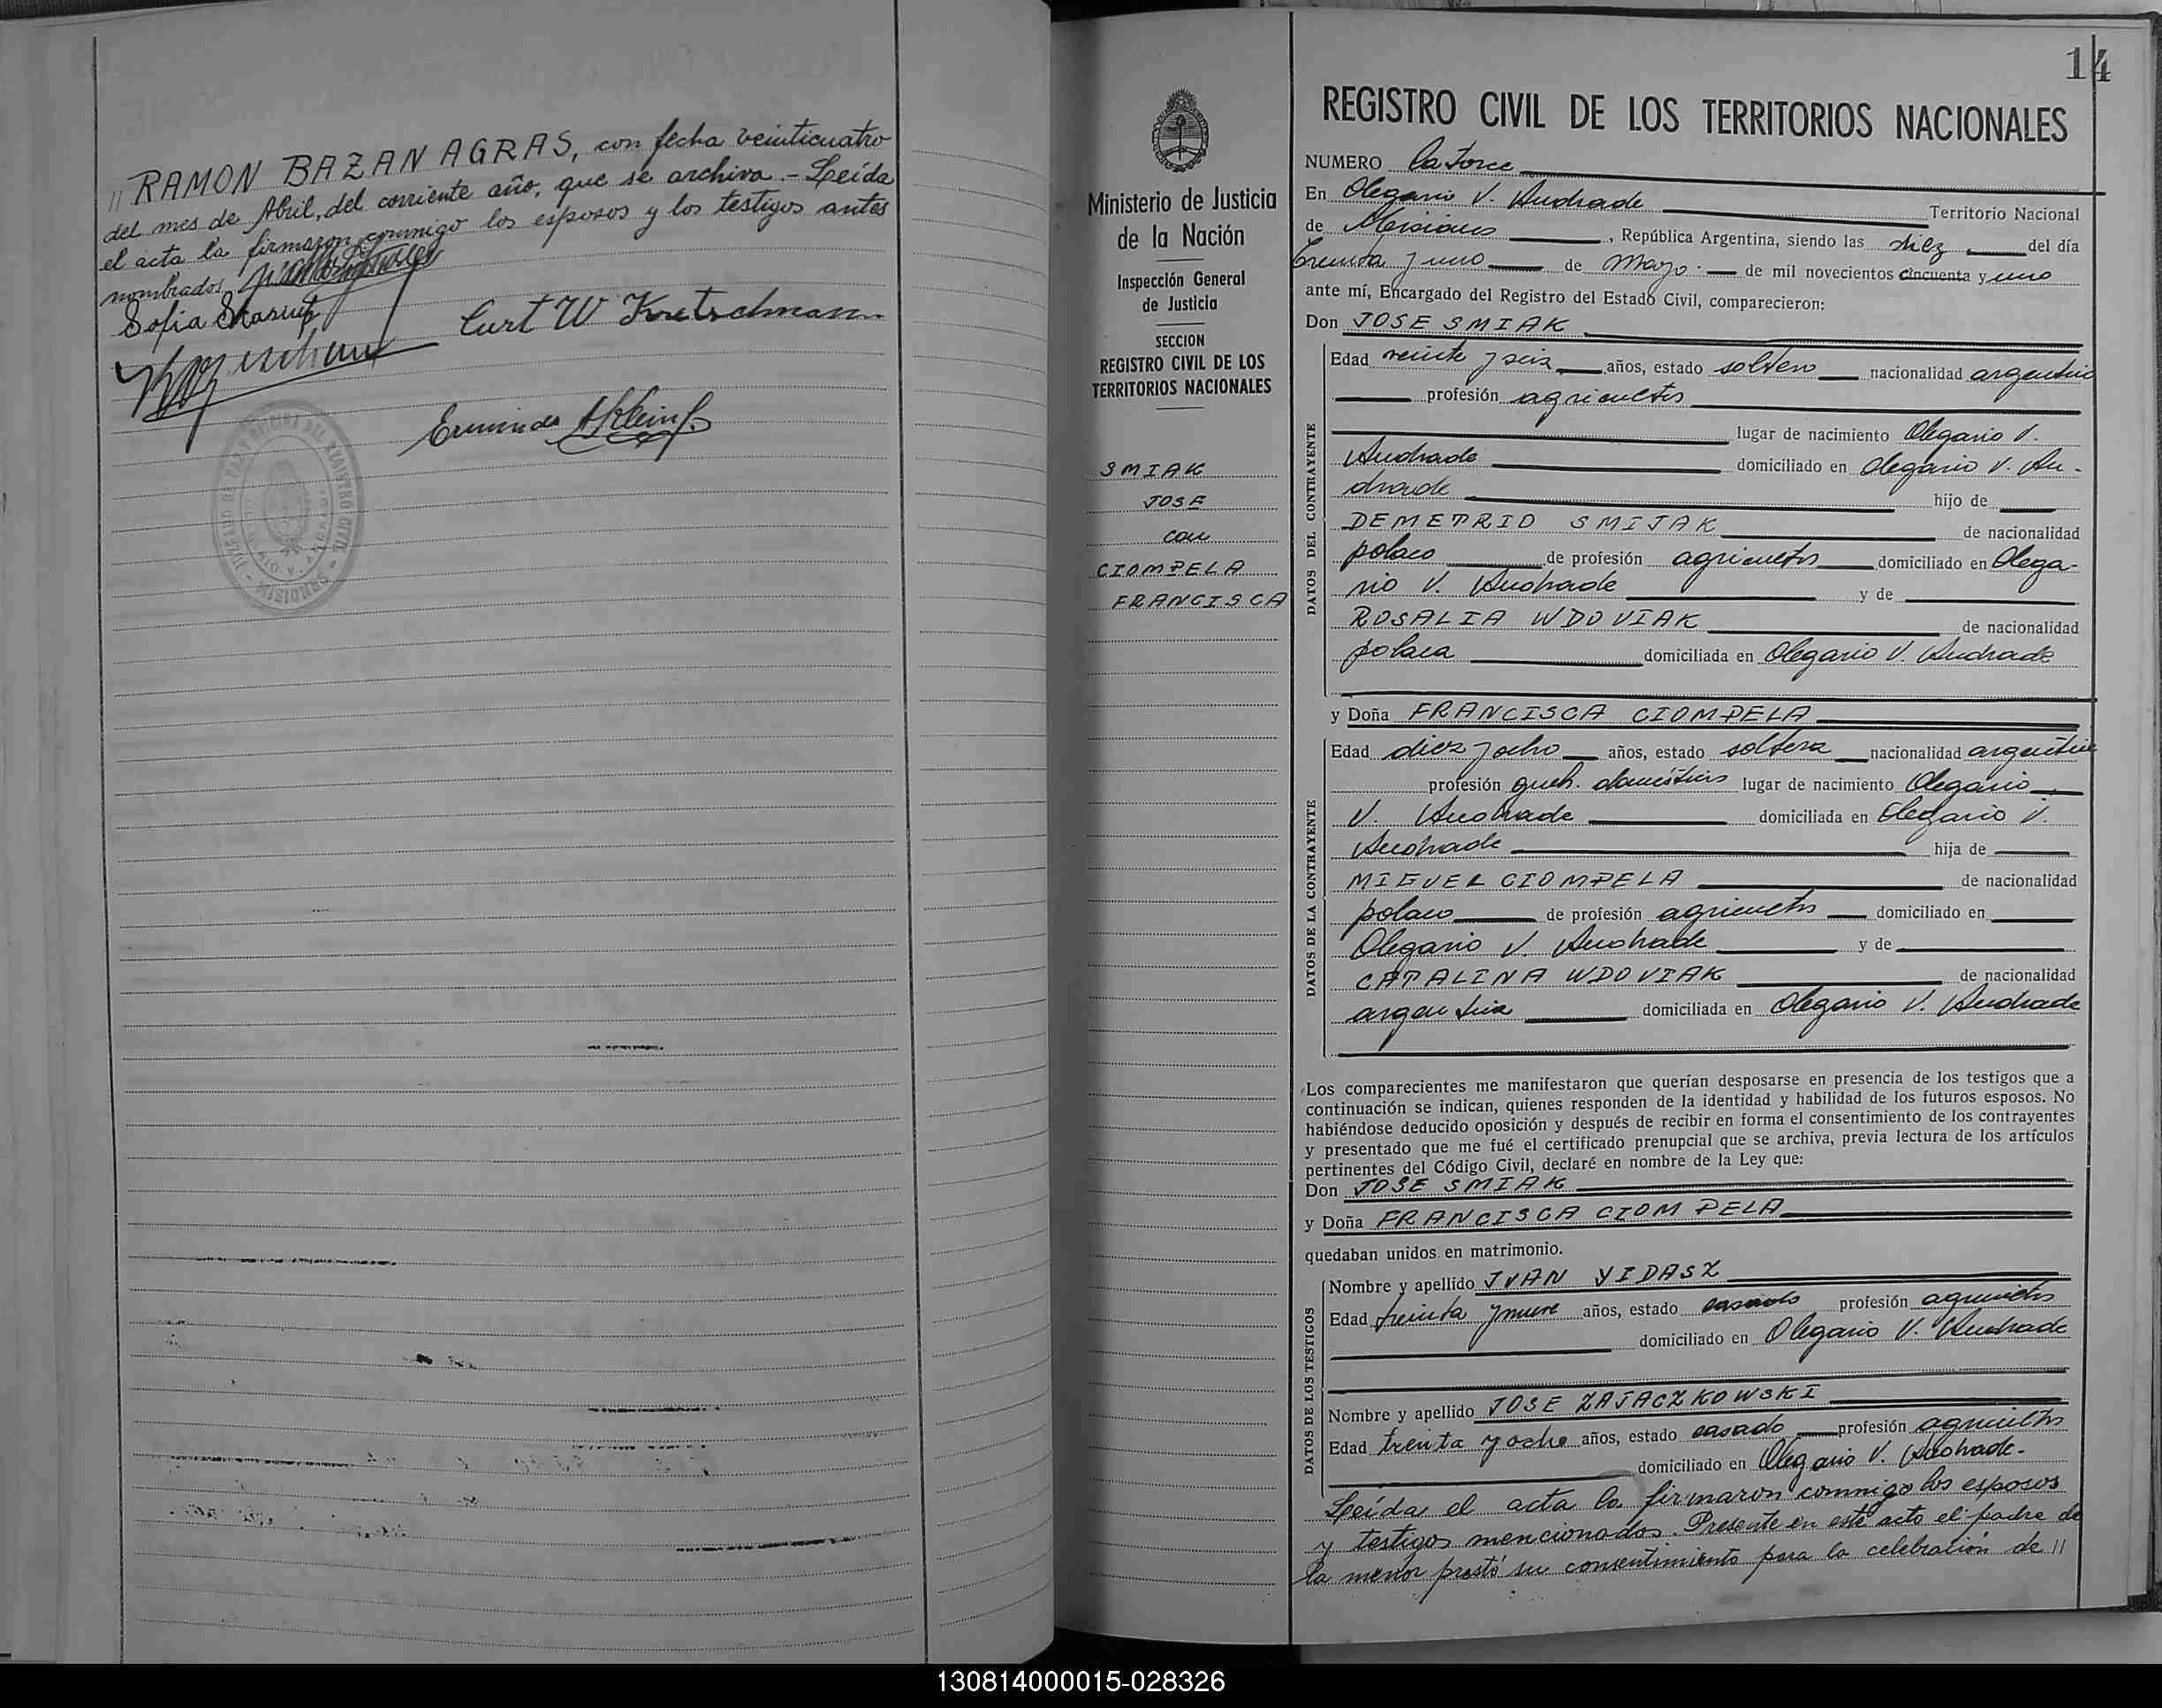 // RAMON BAZAN AGRAS, con fecha veinticuatro
del mes de Abril, del corriente año, que se archiva.- Leída
el acta la firmaron conmigo los esposos y los testigos antes
nombrados.
Sofia
Curt W Kretschmann
Erminda A Klein
14
REGISTRO CIVIL DE LOS TERRITORIOS NACIONALES
NUMERO Catorce
En Olegario V. Andrade Territorio Nacional
de Misiones, República Argentina, siendo las diez del día
treinta y uno de Mayo de mil novecientos cincuenta y uno
ante mí, Encargado del Registro del Estado Civil, comparecieron:
Don JOSE SMIAK
Ministerio de Justicia
de la Nación
Inspección General
de Justicia
SECCION
REGISTRO CIVIL DE LOS
TERRITORIOS NACIONALES
SMIAK
JOSE
con
CIOMPELA
FRANCISCA
DATOS DEL CONTRAYENTE
Edad veinte y seis años, estado soltero nacionalidad argentino
profesión agricultor
lugar de nacimiento Olegario V.
Andrade domiciliado en Olegario V. An-
drade hijo de
DEMETRIO SMIJAK de nacionalidad
polaco de profesión agricultor domiciliado en Olega-
rio V. Andrade y de
ROSALIA WDOVIAK de nacionalidad
polaca domiciliada en Olegario V. Andrade
y Doña FRANCISCA CIOMPELA
DATOS DE LA CONTRAYENTE
Edad diez y ocho años, estado soltera nacionalidad argentina
profesión queh. domésticos lugar de nacimiento Olegario
V. Andrade domiciliada en Olegario V.
Andrade hija de
MIGUEL CIOMPELA de nacionalidad
polaco de profesión agricultor domiciliado en
Olegario V. Andrade y de
CATALINA WDOVIAK de nacionalidad
argentina domiciliada en Olegario V. Andrade
Los comparecientes me manifestaron que querían desposarse en presencia de los testigos que a
continuación se indican, quienes responden de la identidad y habilidad de los futuros esposos. No
habiéndose deducido oposición y después de recibir en forma el consentimiento de los contrayentes
y presentado que me fué el certificado prenupcial que se archiva, previa lectura de los artículos
pertinentes del Código Civil, declaré en nombre de la Ley que:
Don JOSE SMIAK
y Doña FRANCISCA CIOMPELA
quedaban unidos en matrimonio.
DATOS DE LOS TESTIGOS
Nombre y apellido JUAN YIDASZ
Edad treinta y nueve años, estado casado profesión agricultor
domiciliado en Olegario V. Andrade
Nombre y apellido JOSE ZAJACZKOWSKI
Edad treinta y ocho años, estado casado profesión agricultor
domiciliado en Olegario V. Andrade.
Leída el acta la firmaron conmigo los esposos
y testigos mencionados. Presente en este acto el padre de
la menor prestó su consentimiento para la celebración de //
130814000015-028326